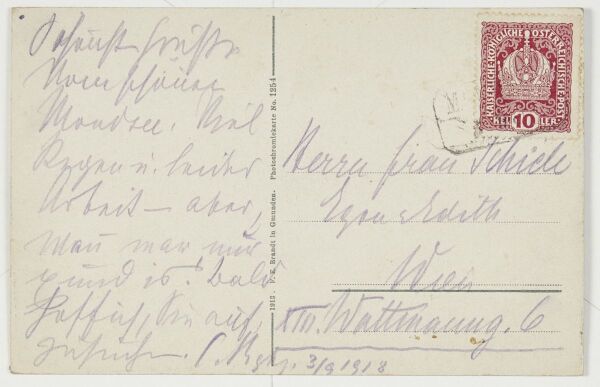 schönste Grüße
vom schönen
Mondsee. Viel
Regen u. leider
Arbeit – aber,
man war mir
bald
hoffich, Sie auf
3/9 1918
1912. F. E. Brandt in Gmunden. Photochromiekarte No. 1254
KAISERLICHE KÖNIGLICHE ÖSTERREICHISCHE POST
HELLER
10
Herrn Frau Schiele
Egon Edith
Wien
XIII. Wattmanng. 6